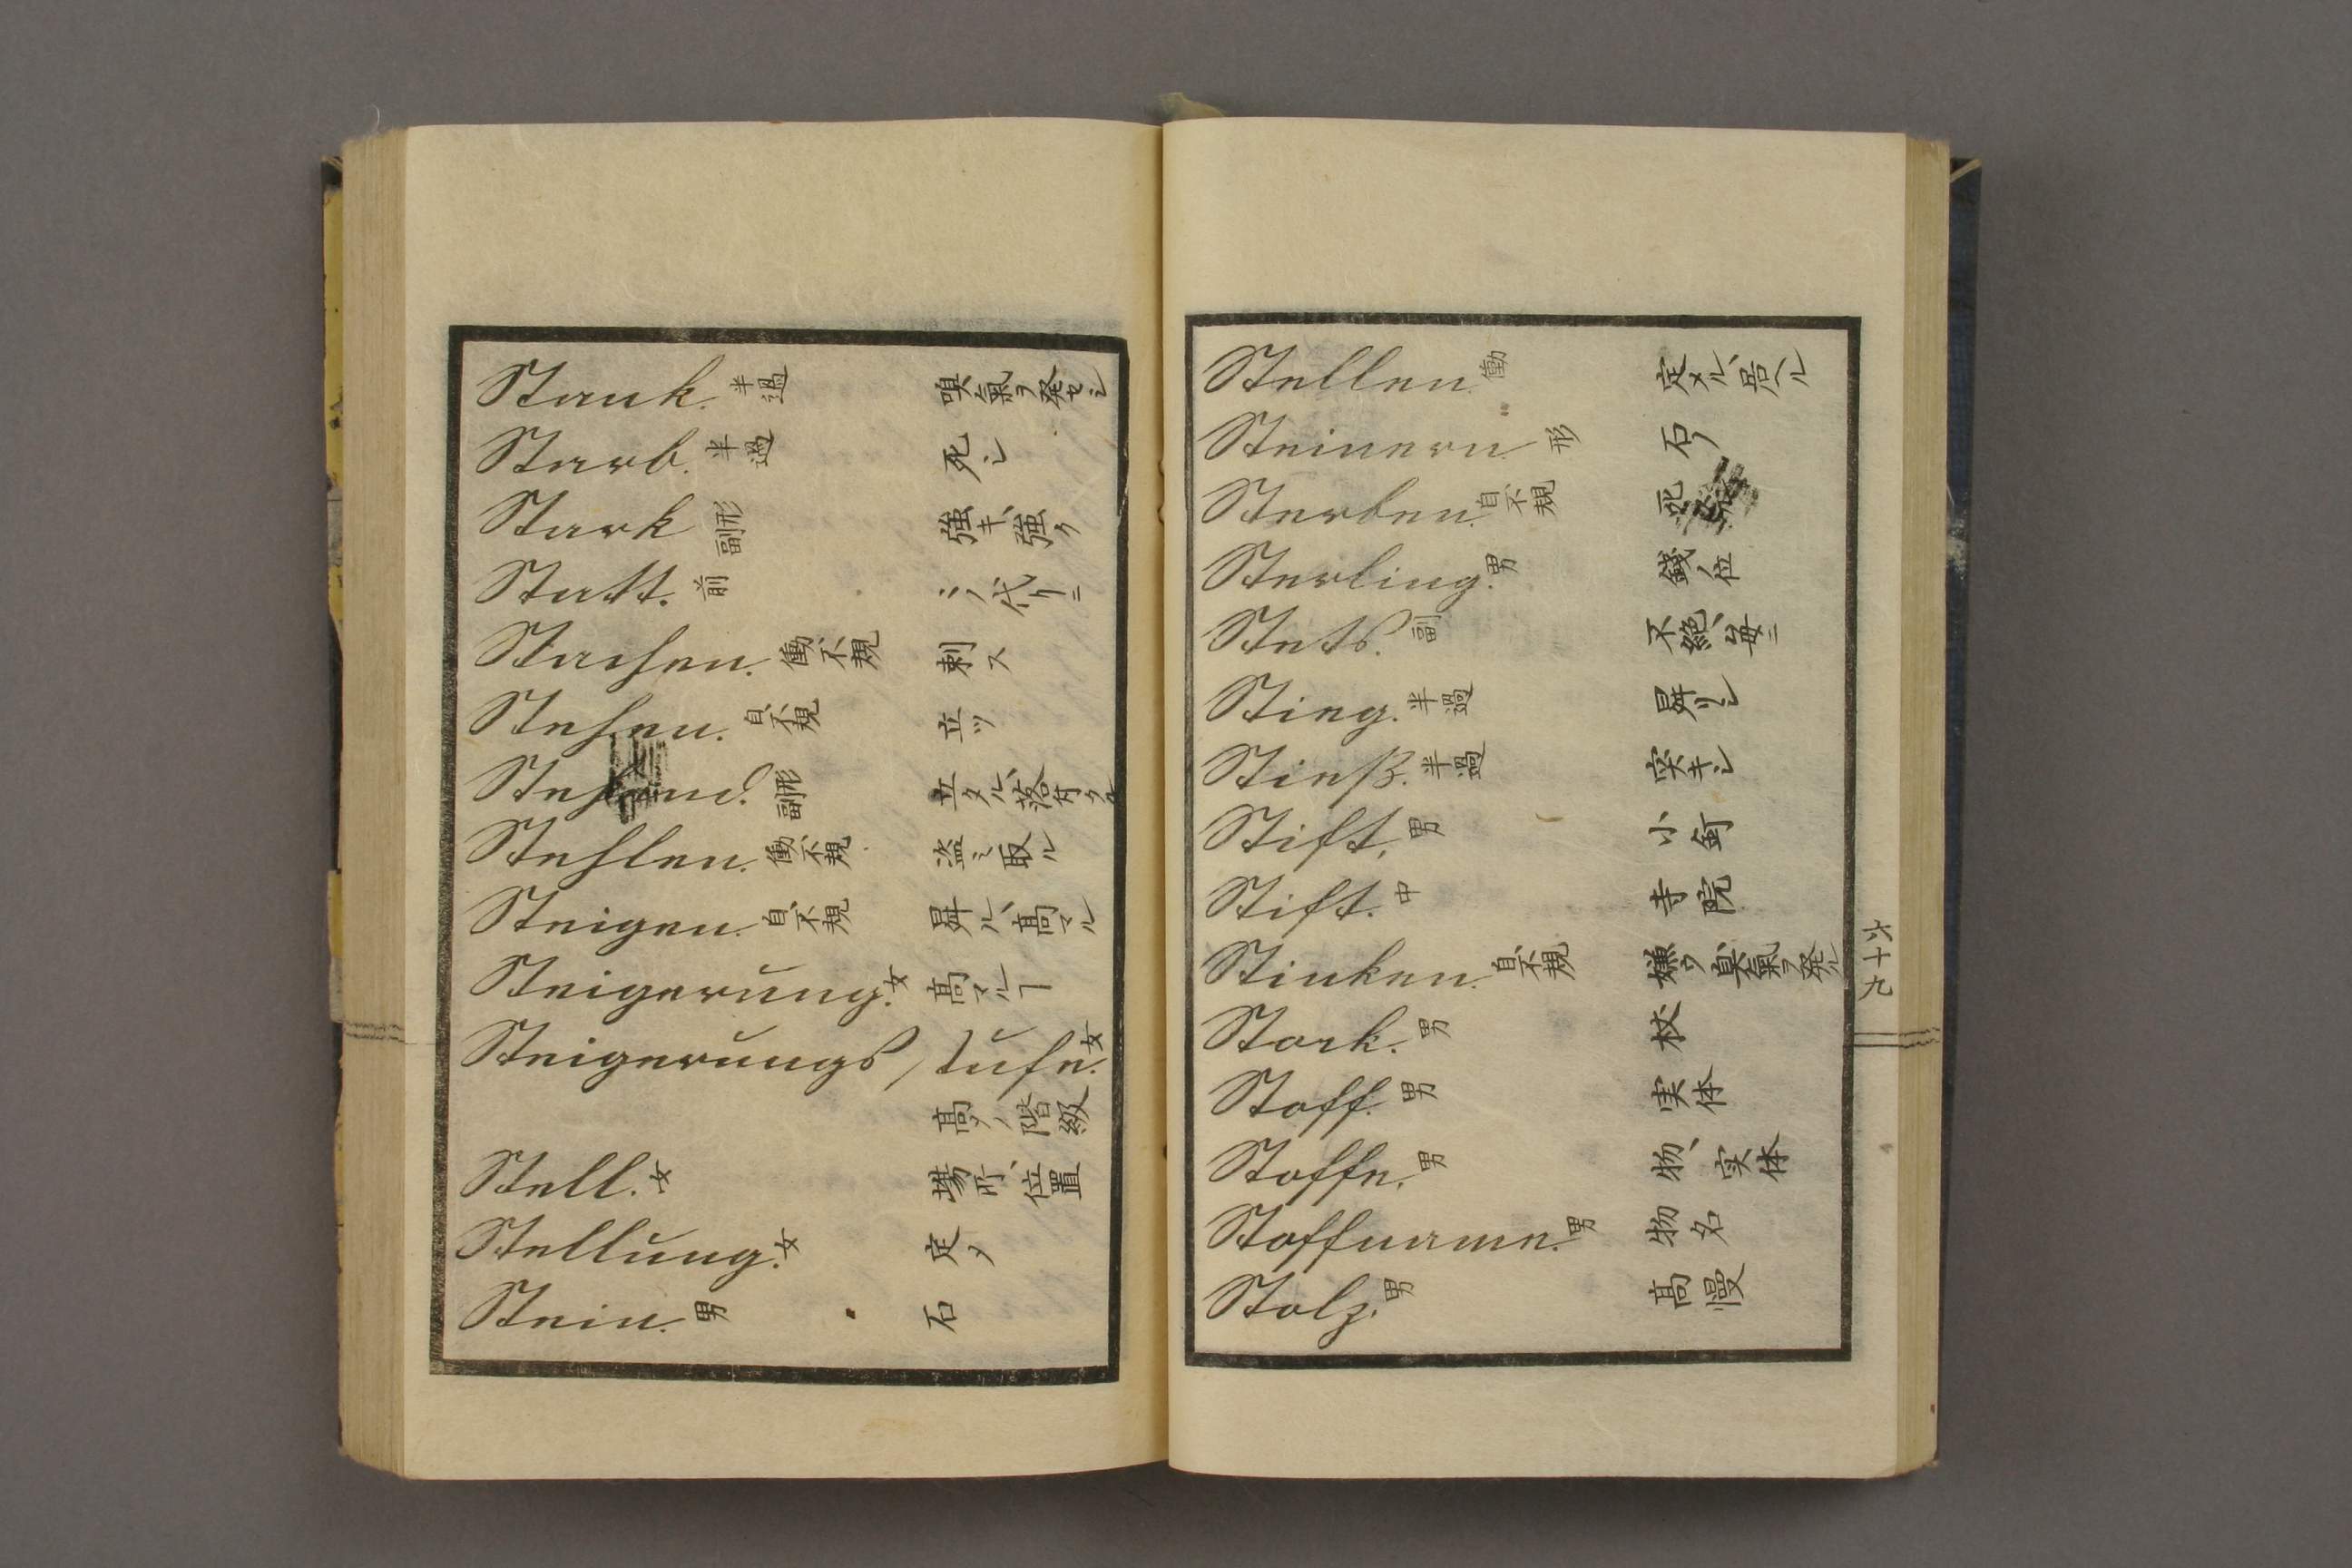 Stank. 半過 嗅氣ヲ発セシ
Starb. 半過 死シ
Stark 副形 強キ、強ク
Statt. 前 ノ代リニ
Stachen. 働、不規 刺ス
Stehen. 自、不規 立ツ
Stehend. 副形 立タル、落付
Stehlen. 働、不規 盗ミ取ル
Steigen. 自、不規 昇ル、高マル
Steigerung. 女 高マルヿ
Steigerungsstufe. 女
高ノ階級
Stell. 女 場所、位置
Stellung. 女 定メ
Stein. 男 石
Stellen. 働 定メル
Steinern. 形 石ノ
Sterben. 自、不規 死
Sterling. 男 錢ノ位
Stets. 副 不絶、毎ニ
Stieg. 半過 昇リシ
Stieß. 半過 突キシ
Stift. 男 小釘
Stift. 中 寺院
Stinken. 自、不規 嫌フ、臭氣ヲ発ル
Stock. 男 杖
Stoff. 男 実体
Stoffe. 男 物、実体
Stoffname. 男 物名
Stolz. 男 高慢
六十九